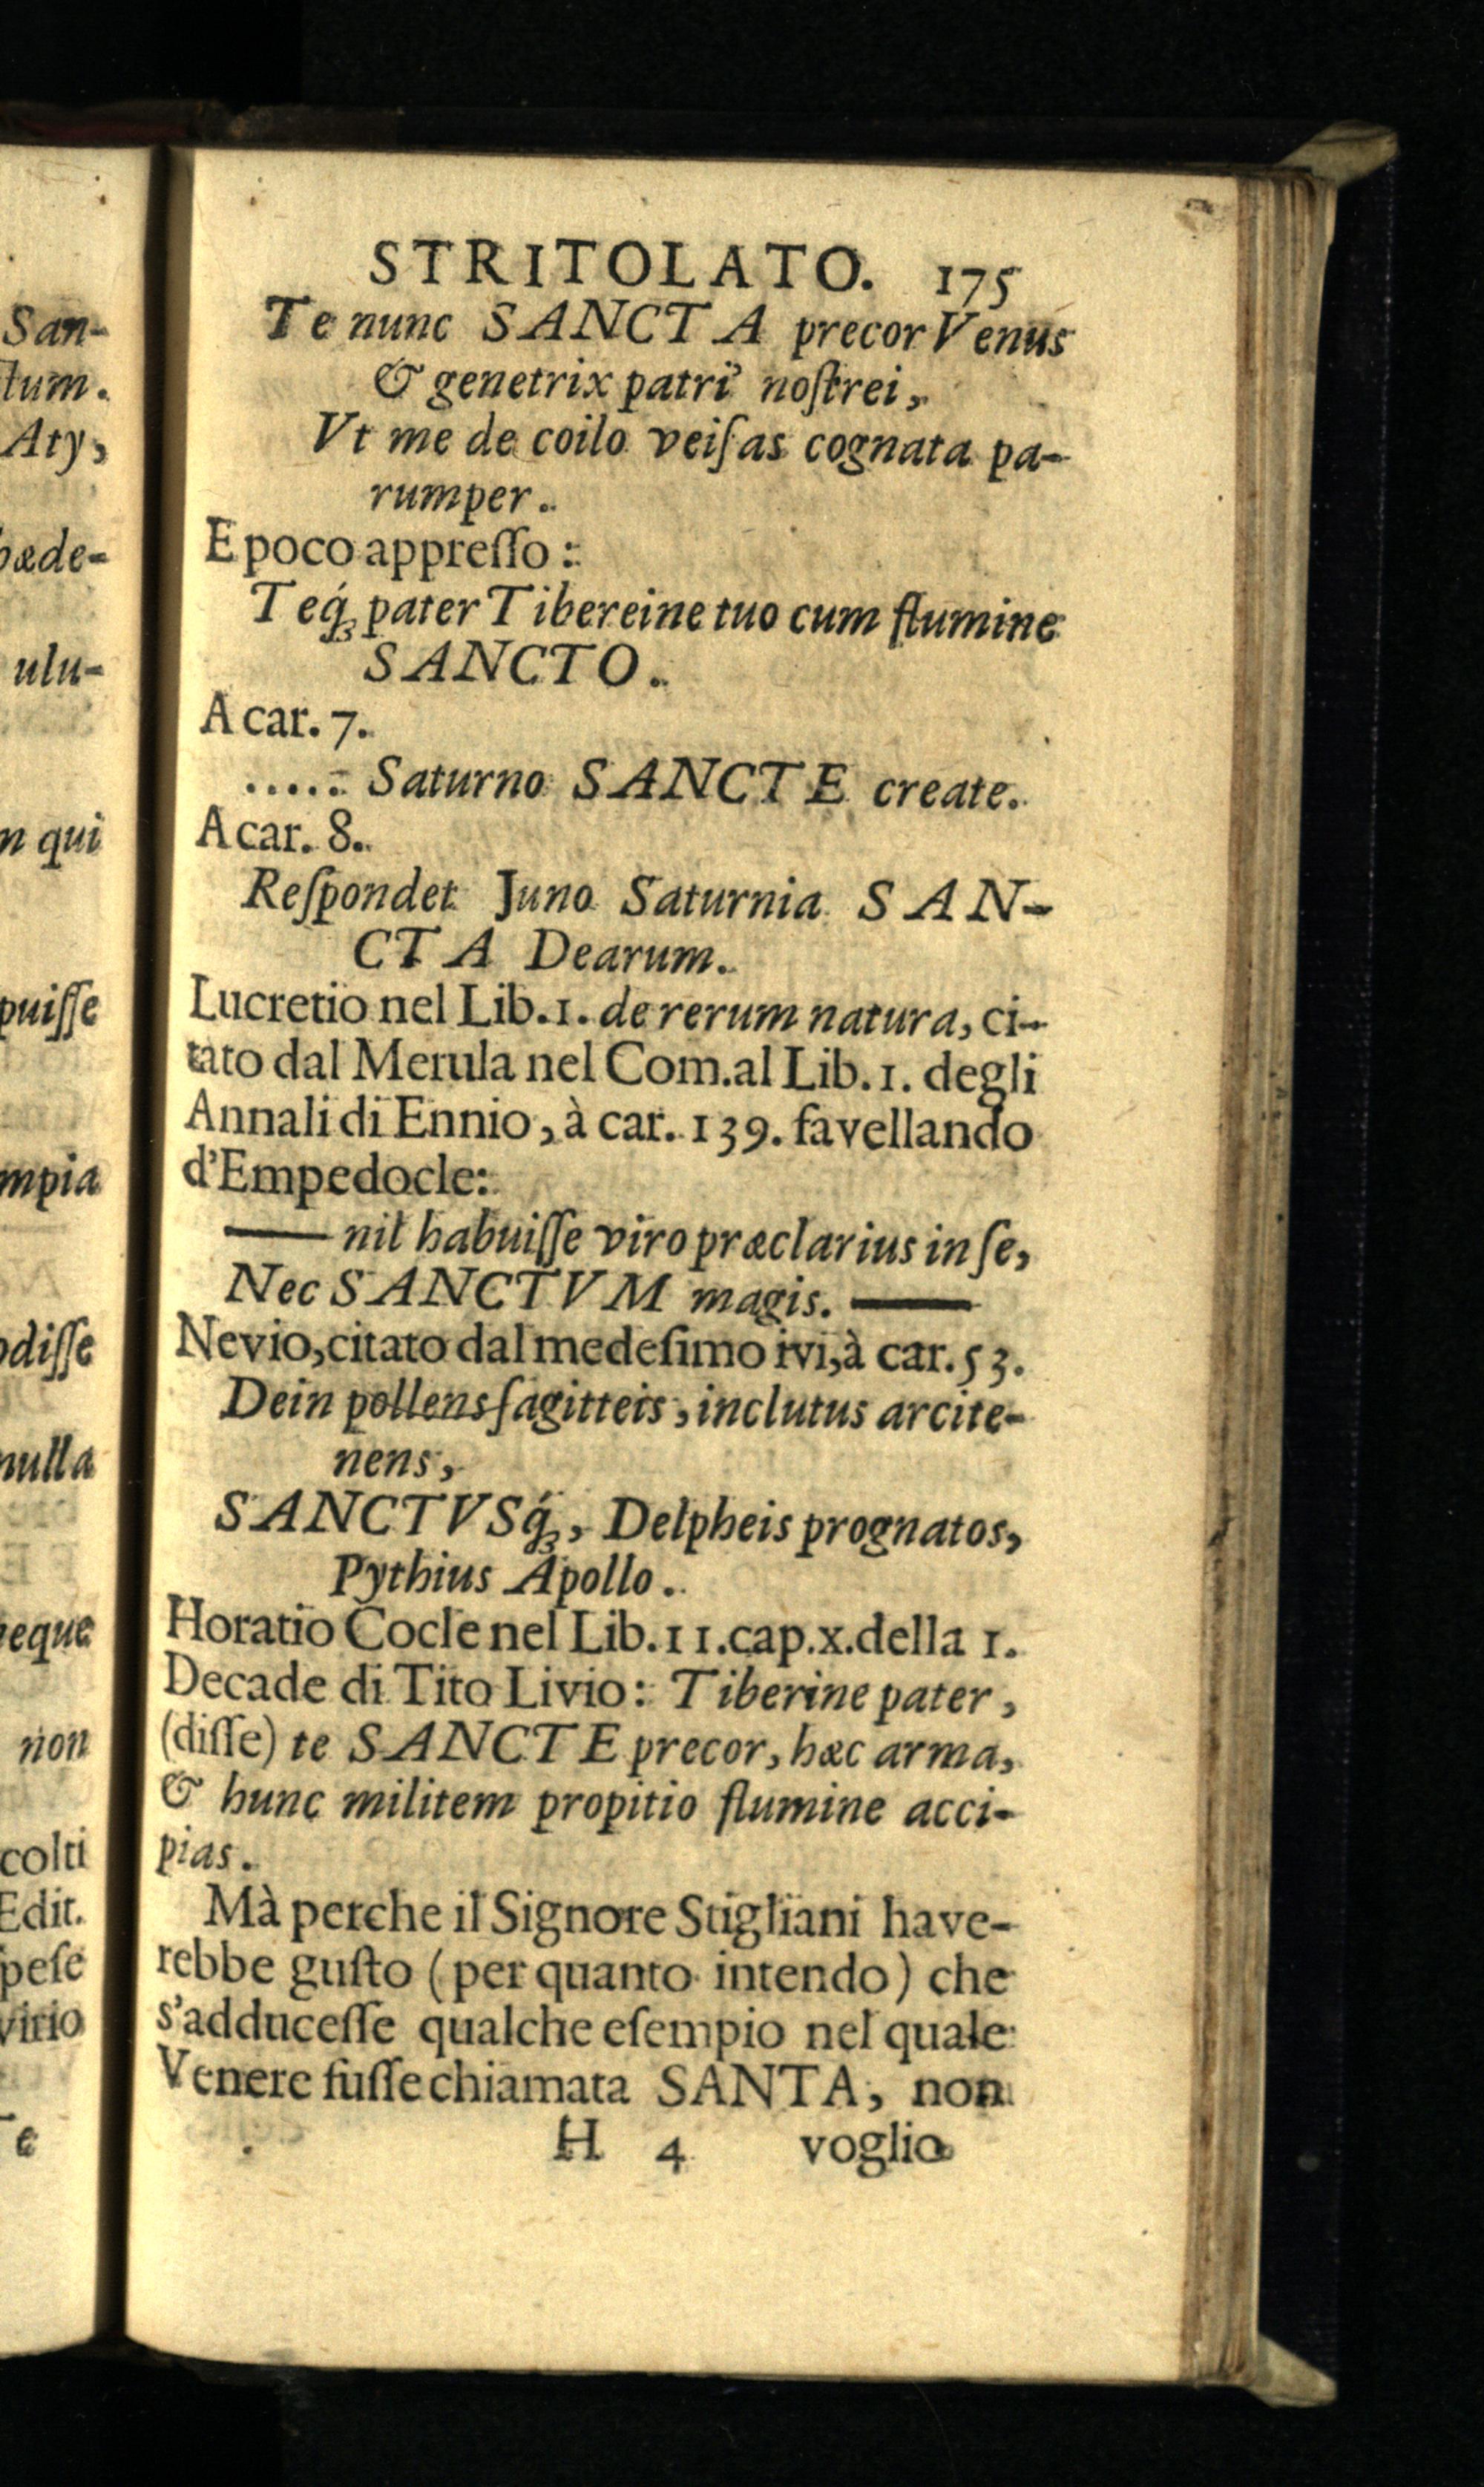 San-
ctum.
Aty,
bæde-
ulu-
n qui
puiſſe
mpia
odiſſe
nulla
neque
non
colti
Edit.
ſpeſe
virio
e
STRITOLATO. 175
Te nunc SANCTA precor Venus
& genetrix patri' noſtrei,
Vt me de coilo veiſas cognata pa-
rumper.
E poco appreſſo:
Teq́ꝫ pater Tibereine tuo cum flumine
SANCTO.
A car. 7.
..... Saturno SANCTE create.
A car. 8.
Reſpondet Juno Saturnia SAN-
CTA Dearum.
Lucretio nel Lib.1. de rerum natura, ci-
tato dal Merula nel Com.al Lib.1. degli
Annali di Ennio, à car. 139. favellando
d'Empedocle:
—— nil habuiſſe viro præclarius in ſe,
Nec SANCTVM magis. ——
Nevio,citato dal medeſimo ivi,à car.53.
Dein pollens ſagitteis, inclutus arcite-
nens,
SANCTVSq́ꝫ, Delpheis prognatos,
Pythius Apollo.
Horatio Cocle nel Lib.11.cap.x.della 1.
Decade di Tito Livio: Tiberine pater,
(diſſe) te SANCTE precor, hæc arma,
& hunc militem propitio flumine acci-
pias.
Mà perche il Signore Stigliani have-
rebbe guſto (per quanto intendo) che
s'adduceſſe qualche eſempio nel quale
Venere fuſſe chiamata SANTA, non
H 4 voglio